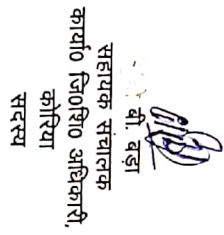 बी. बड़ा
सहायक संचालक
कार्या0 जि0शि0 अधिकारी.
कोरिया
सदस्य